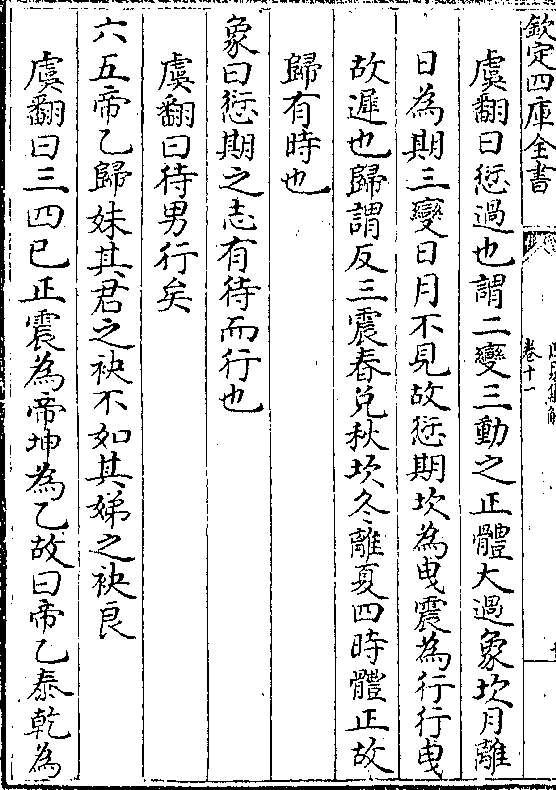 欽定四庫全書
卷十一
虞翻曰愆過也謂二變三動之正體大過象坎月離
日為期三變日月不見故愆期坎為曳震為行行曳
故遲也歸謂反三震春兌秋坎冬離夏四時體正故
歸有時也
象曰愆期之志有待而行也
虞翻曰待男行矣
六五帝乙歸妹其君之袂不如其娣之袂良
虞翻曰三四已正震為帝坤為乙故曰帝乙泰乾為